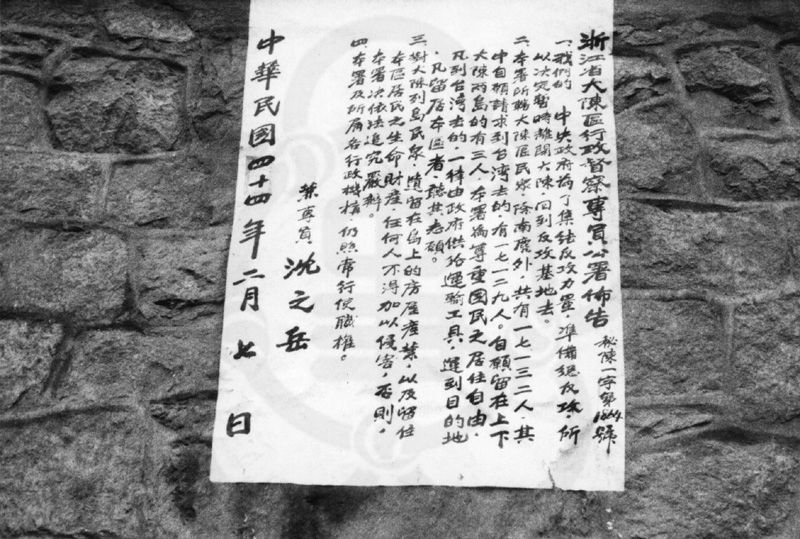 浙江省大陳區行政督察專員公署佈告
秘陳一字第1064號
一、我們的　中央政府為了集結反攻力量，準備總反攻，所
以決定暫時離開大陳回到反攻基地去。
二、本署所轄大陳區民眾，除南麂外，共有一七一三二人，其
中自願請求到台湾去的，有一七一二九人。自願留在上下
大陳兩島的有三人，本署為尊重國民之居住自由，
凡到台湾去的，一律由政府供給運輸工具，運到目的地
，凡留居本區者，聽其志願。
三、對大陳列島民眾，遺留在島上的房屋產業，以及留住
本區居民之生命財產，任何人不得加以侵害，否則，
本署決依法追究嚴辦。
四、本署及所屬各行政機構，仍照常行使職權。
兼專員　沈之岳
中華民國四十四年二月七日